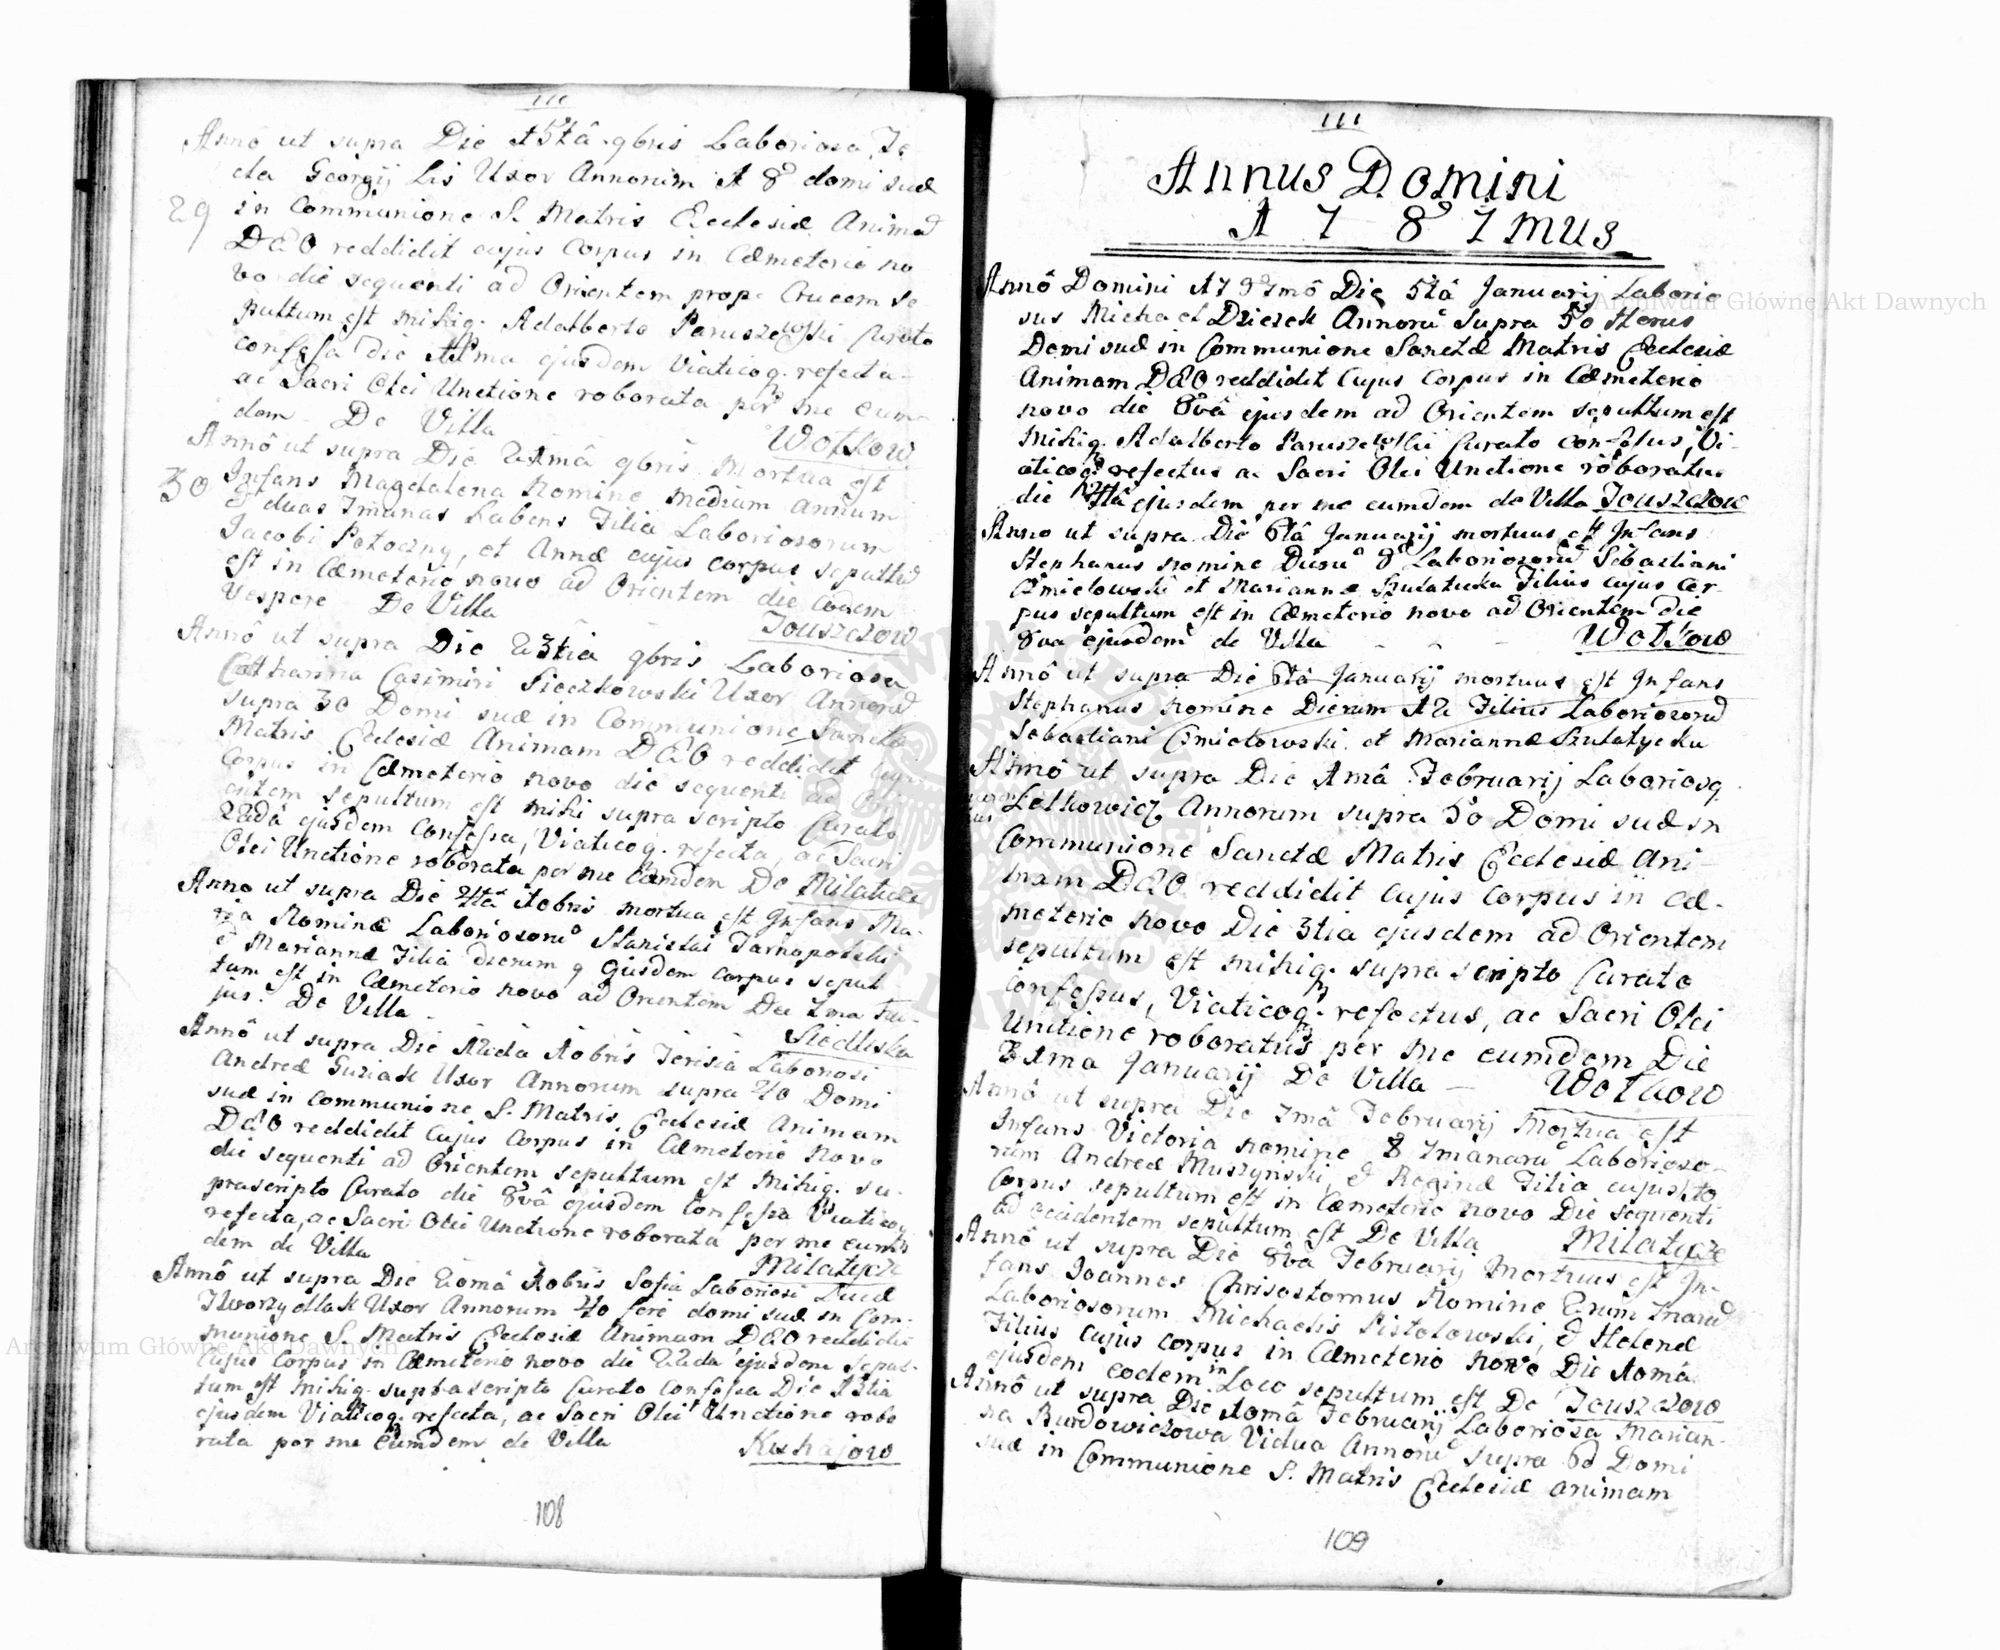 111
Annô ut supra Die 15tâ 9bris Laboriosa Te
cla Georgij Lis Uxor Annorum 18 domi suæ
29 in Communione S. Matris Ecclesiæ Animã
DEO reddidit cujus Corpus in Cæmeterio no
vo die sequenti ad Orientem prope Crucem se
pultum est mihiq. Adalberto Paruszewski Curato
confessa die ejusdem Viaticoq. refecta
ac Sacri Olei Unctione roborata per me eum
dem De Villa Wotkow
Annô ut supra Die 21mâ 9bris Mortua est
30 Infans Magdalena Nomine medium annum
& duas 7manas habens Filia Laboriosorum
Jacobi Potoczny, et Annæ cujus corpus sepultũ
est in Cæmeterio novo ad Orientem die eodem
Vespere De Villa Touszczow
Annô ut supra Die 23tia 9bris Laboriosa
Catharina Casimiri Sieczkowski Uxor Annorũ
supra 30 Domi suæ in Communione Sanctæ
Matris Ecclesiæ Animam DEO reddidit cujus
Corpus in Cæmeterio novo die sequenti ad Ori
entem sepultum est mihi supra scripto Curato
22dâ ejusdem Confessa, Viaticoq. refecta, ac Sacri
Olei Unctione roborata per me Eumdem De Milatycze
Anno ut supra Die 4tâ Xobris mortua est Infans Ma-
ria Nomine Laboriosorũ Stanislai Tarnopolski
& Mariannæ Filia dierum 9 Ejusdem corpus sepul
tum est in Cæmeterio novo ad Orientem Die 7ma
jus. De Villa Siedliska
Annô ut supra Die 12da Xobris Terisia Laboriosi
Andreæ Guziak Uxor Annorum supra 40 Domi
suæ in communione S. Matris Ecclesiæ Animam
DEO reddidit Cujus Corpus in Cæmeterio Novo
die sequenti ad Orientem sepultum est Mihiq. su-
prascripto Curato die 8vâ ejusdem Confessa Viaticoq
refecta, ac Sacri Olei Unctione roborata per me eum
dem de Villa Milatycze
Annô ut supra Die 20mâ Xobris Sofia Laboriosi Lucæ
Uxor Annorum 40 fere domi suæ in Com-
munione S. Matris Ecclesiæ Animam DEO reddidit
Cujus Corpus in Cæmeterio novo die 22da ejusdem sepul-
tum est mihiq. supra scripto Curato Confessa Die 13tia
ejusdem Viaticoq. refecta, ac Sacri Olei Unctione robo
rata per me Eumdem de Villa Krzhajow
108
111
Annus Domini
1 7 8 7mus
Annô Domini 1787mô Die 5tâ Januarij Laborio
sus Michael Dziezek Annorũ Supra 50
Domi suæ in Communione Sanctæ Matris Ecclesiæ
Animam DEO reddidit Cujus Corpus in Cæmeterio
novo die 8vâ ejusdem ad Orientem sepultum est
Mihiq. Adalberto Paruszewski Curato confessus, Vi-
aticoq. refectus ac Sacri Olei Unctione roboratus
die 4tâ ejusdem per me eumdem de Villa Touszczow
Anno ut supra Die 6tâ Januarij mortuus est Infans
Stephanus nomine 8 Laboriosorũ Sebastiani
Cmielowski et Mariannæ Szulatucka Filius cujus Cor-
pus sepultum est in Cæmeterio novo ad Orientem die
8va ejusdem de Villa - - - Wotkow
Annô ut supra Die 6tâ Januarij mortuus est Infans
Stephanus Nomine Dierum 12 Filius Laboriosorũ
Sebastiani Cmielowski et Mariannæ Szulatycka
Annô ut supra Die 1mâ Februarij Laborios
Letkowicz Annorum supra 50 Domi suæ in
Communione Sanctæ Matris Ecclesiæ Ani-
mam DEO reddidit cujus Corpus in Cæ-
meterio novo Die 3tia ejusdem ad Orientem
sepultum est mihiq. supra scripto Curato
confessus, Viaticoq. refectus, ac Sacri Olei
Unctione roboratus per me eumdem Die
31ma Januarij De Villa - Wotkow
Annô ut supra Die 7mâ Februarij Mortua est
Infans Victoria nomine 8 7manarũ Laborioso-
rum Andreæ Muszynski, & Reginæ Filia cujus
Corpus sepultum est in Cæmeterio novo Die sequenti
ad occidentem sepultum est De Villa Milatycze
Annô ut supra Die 8va Februarij Mortuus est In-
fans Joannes Chrisostomus Nomine 2rum 7manarũ
Laboriosorum Michaelis Pistolowski, & Helenæ
Filius cujus corpus in Cæmeterio novo Die 10mâ
ejusdem eodem in Loco sepultum est De Touszczow
Annô ut supra Die 10mâ Februarij Laboriosa Marian-
na Burdowiczowa Vidua Annorũ supra 60 Domi
suæ in Communione S. Matris Ecclesiæ animam
109
Archiwum Główne Akt Dawnych
Archiwum Główne Akt Dawnych